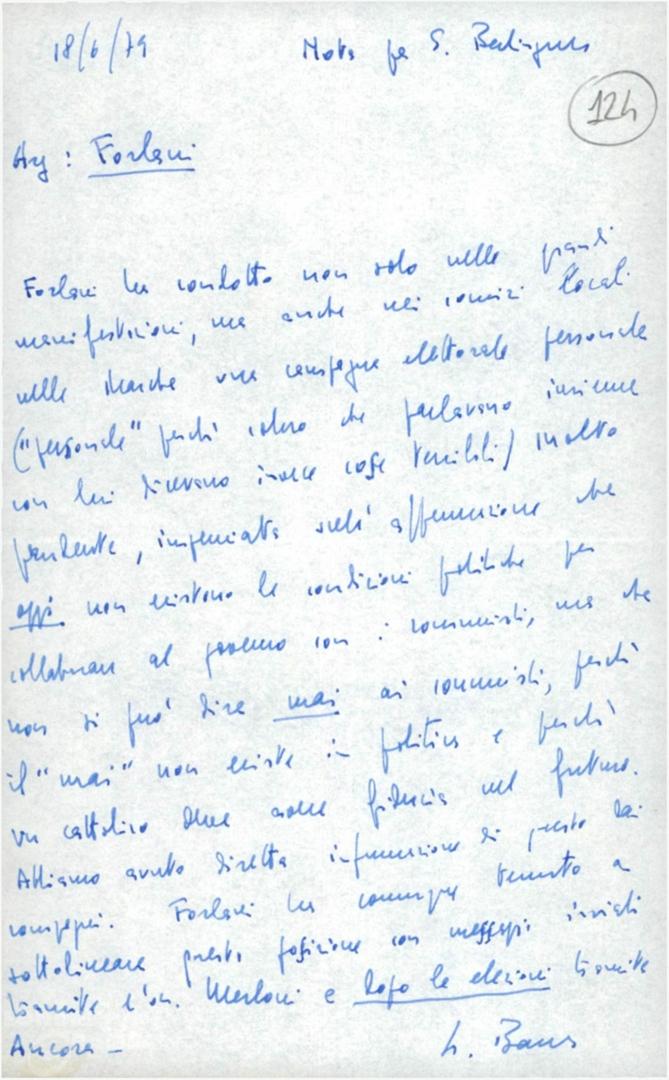 18/6/79 Nota per E. Berlinguer
124
Arg: Forlani
Forlani ha condotto non solo nelle grandi
manifestazioni, ma anche nei comizi locali
nelle Marche una campagna elettorale personale
("personale" perché coloro che parlavano insieme
con lui dicevano invece cose terribili) molto
prudente, imperniata sull'affermazione che
oggi non esistono le condizioni politiche per
collaborare al governo con i comunisti, ma che
non si può dire mai ai comunisti, perché
il "mai" non esiste in politica e perché
un cattolico deve avere fiducia nel futuro.
Abbiamo avuto diretta informazione di questo dai
compagni. Forlani ha comunque tenuto a
sottolineare questa posizione con messaggi inviati
tramite l'on. Merloni e dopo le elezioni tramite
Ancora -
L. Barca